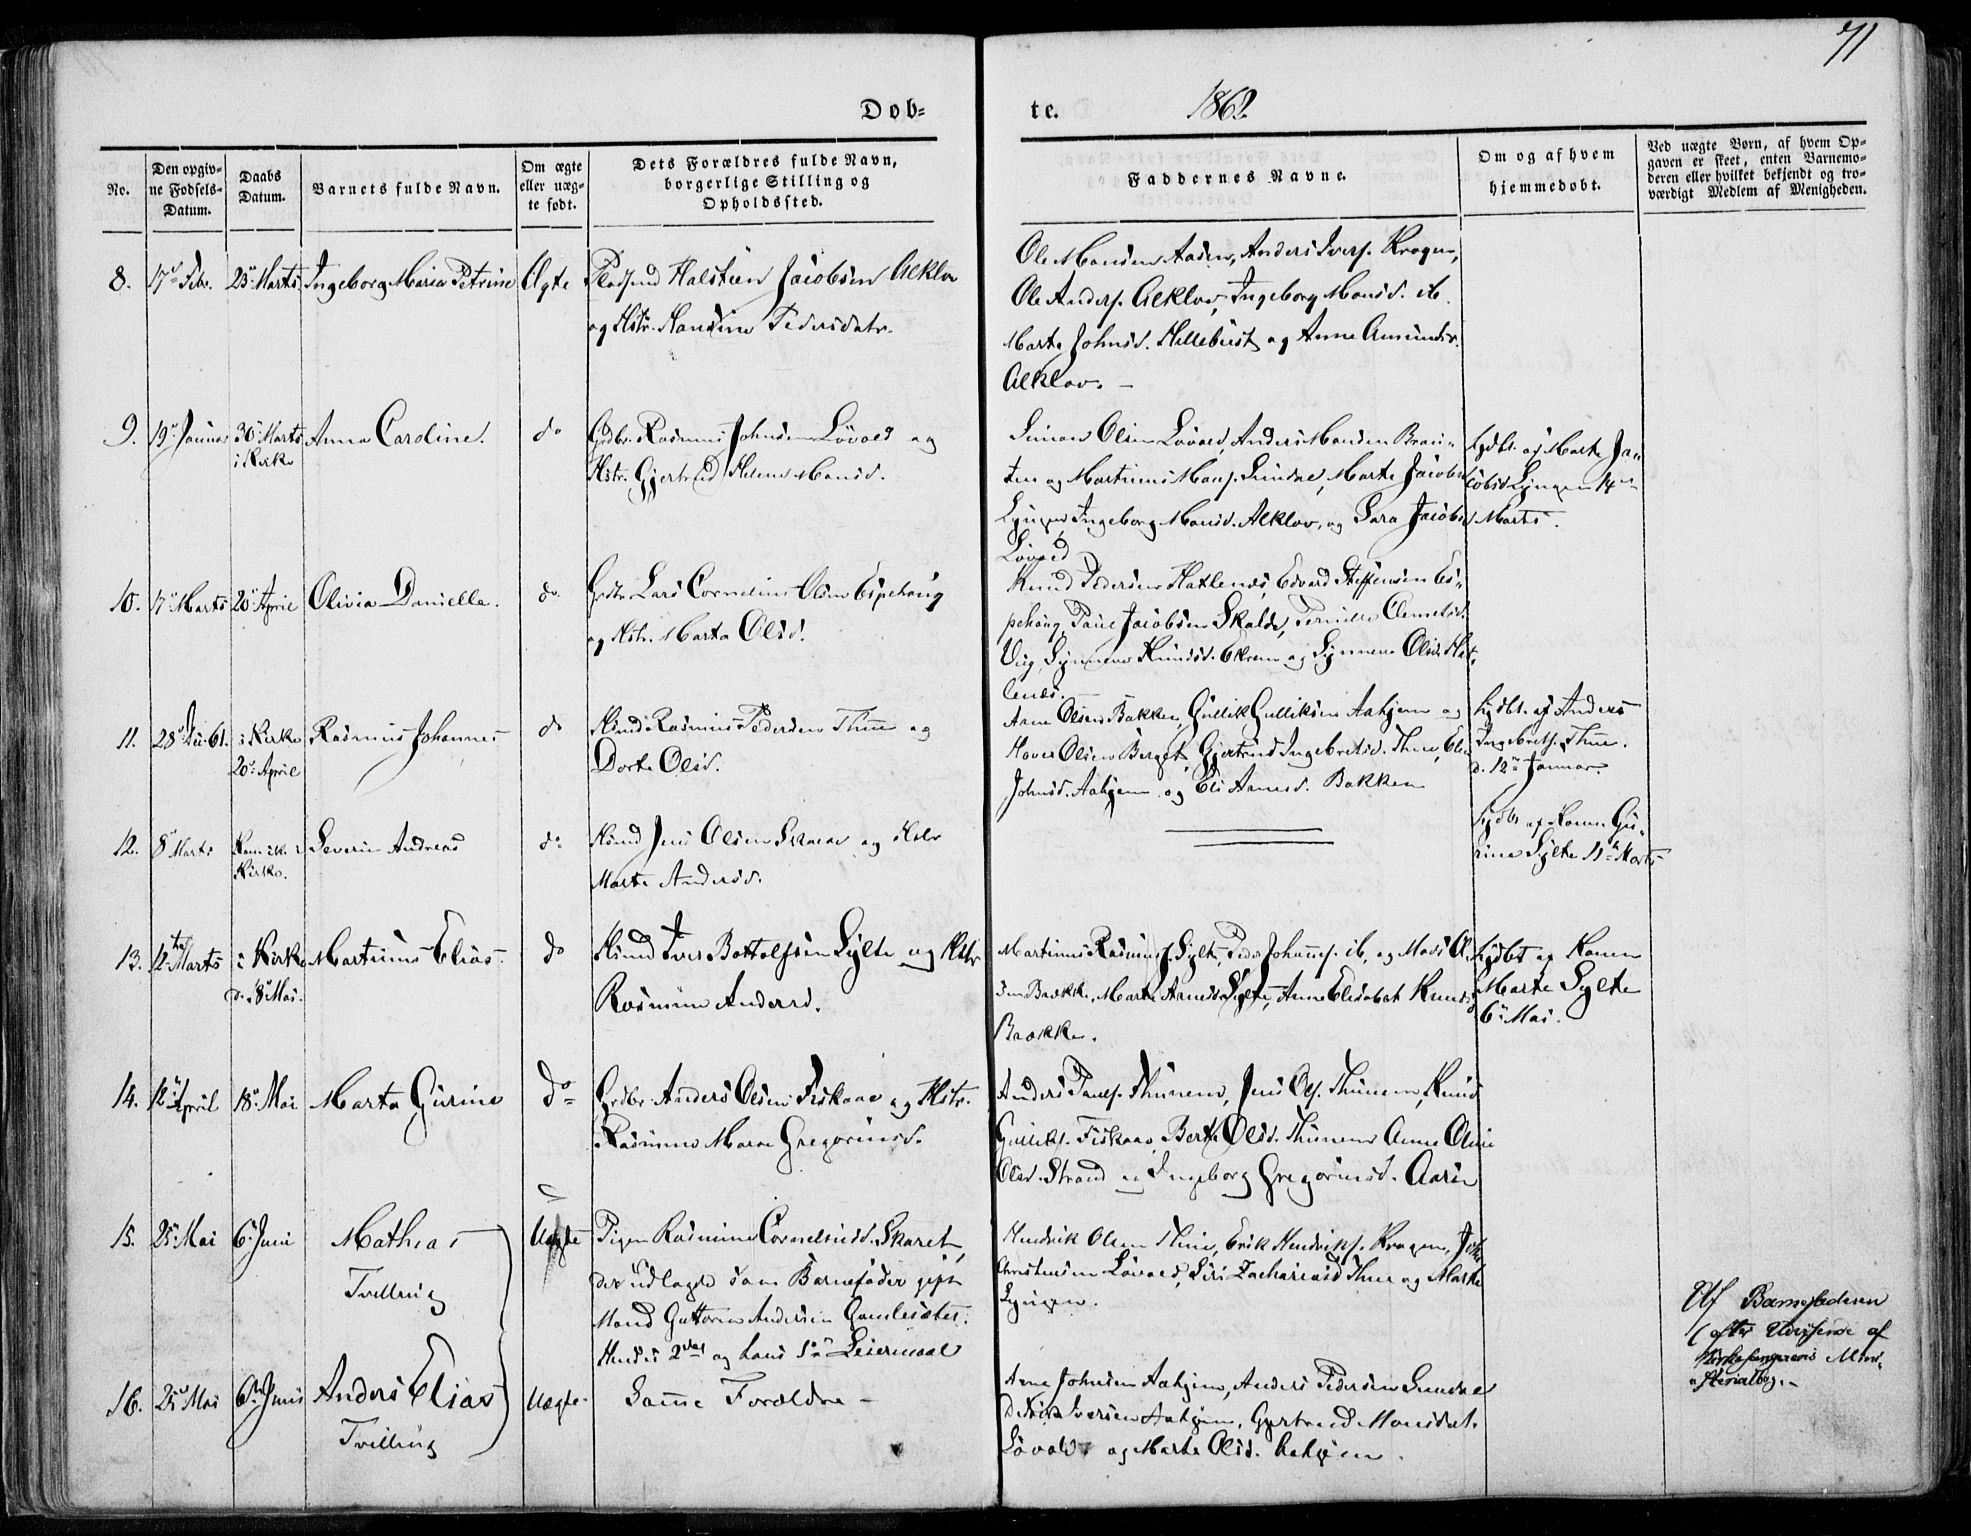 71
Døb=
te.
1862
No.
Den opgiv=
ne Fødsels=
Datum.
Daabs
Datum.
Barnets fulde Navn.
Om ægte
eller uæg=
te født.
Dets Forældres fulde Navn,
borgerlige Stilling og
Opholdssted.
Faddernes Navne.
Om og af hvem
hjemmedøbt.
Ved uægte Børn, af hvem Op=
gaven er skeet, enten Barnemo=
deren eller hvilket bekjendt og tro=
værdigt Medlem af Menigheden.
8.
17de Febr.
25de Marts
Ingeborg Maria Petrine
Ægte
Pladsmd Halsteen Jacobsen Aklov
og Hstr. Handine Pedersdatr.
Ole Monsen Aasen, Anders Ivers. Kragen,
Ole Anders. Aklov, Ingeborg Monsd. ib.
Marte Johnsd. Hellebust og Anne Amundsd.
Aklov. –
9.
19de Januar
30te Marts
i Kirke
Anna Caroline.
do
Grdbr. Rasmus Johnsen Løvold og
Hstr. Gjertrud Helene Monsd.
Simon Olsen Løvold, Anders Monsen Brau=
ten og Martinus Mons. Sundre, Marte Jacobsd
Lyngen, Ingeborg Monsd. Aklov, og Sara Jacobsd
Løvold
Hjdbt. af Marte Ja=
cobsd Lyngen 14de
Marts.
10.
17de Marts
20de April
Olivia Danielle.
do
Grdbr. Lars Cornelius Olsen Espehoug
og Hstr. Marta Olsd.
Knud Pedersen Hatlenæs, Edvard Steffensen Es=
pehoug, Paul Jacobsen Skalde, Pernille Clemetsd.
Vug, Synneve Knudsd. Ekrem og Synneve Olsd. Hat=
lenæs. –
11.
28de De. 61.
i Kirke
20de April
Rasmus Johannes
do
Hsmd Rasmus Pedersen Thue og
Dorte Olsd.
Arne Olsen Bakken, Gullik Gulliksen Aahjem og
Haver Olsen Berget, Gjertrud Ingebretsd. Thue, Eli
Johnsd. Aahjem og Eli Arnesd. Bakken
Hjdbt. af Anders
Ingebrets. Thue.
d. 12te Januar.
12.
8de Marts
Kom ik. i
Kirke.
Severin Andreas
do
Hsmd Jens Olsen og Hstr
Marte Andersd.
Hjdbt af Konen Gu=
rine Sylte 11te Marts
13.
12te Marts
i Kirke
d. 18de Mai.
Martinus Elias
do
Hsmd Iver Bottolfsen Sylte og Hstr
Rasmine Andersd.
Martinus Rasmus. Sylte, Peder Johanes. ib, og Mads Ol=
sen Bække, Marte Arnesd. Sylte, Anne Elisabet Knudsd
Bække.
Hjdbt af Konen
Marte Sylte
6te Mai.
14.
12te April
18de Mai
Marta Gurine
do
Grdbr. Anders Olsen Fiskaae og Hstr.
Rasmine Marie Gregoriusd.
Anders Pauls. Thunem, Jens Ols. Thunem, Knud
Gulliks. Fiskaae, Berte Olsd. Thunem, Anne Oline
Olsd. Strand og Ingeborg Gregoriusd. Aasen
15.
25de Mai
6te Juni
Mathias
Tvilling
Uægte
Pigen Rasmine Corneliusd. Skaret,
der udlagde som Barnefader gift
Mand Guttorm Andersen Gamlesæter.
Hendes 2det og hans 1ste Leiermaal
Hendrik Olsen Thue, Erik Hendriks. Kragen, John
Christensen Løvold, Siri Zachariasd Thue og Marte
Lyngen.
Af Barnefaderen
(efter Udvisende af
Kirkesangerens Mini=
sterialbog. –
16.
25de Mai
6te Juni
Anders Elias
Tvilling
Uægte
Samme Forældre –
Arne Johnsen Aahjem, Anders Pedersen Sundre
Iversen Aahjem, Gjertrud Monsdat.
Løvold og Marte Olsd. Aahjem.